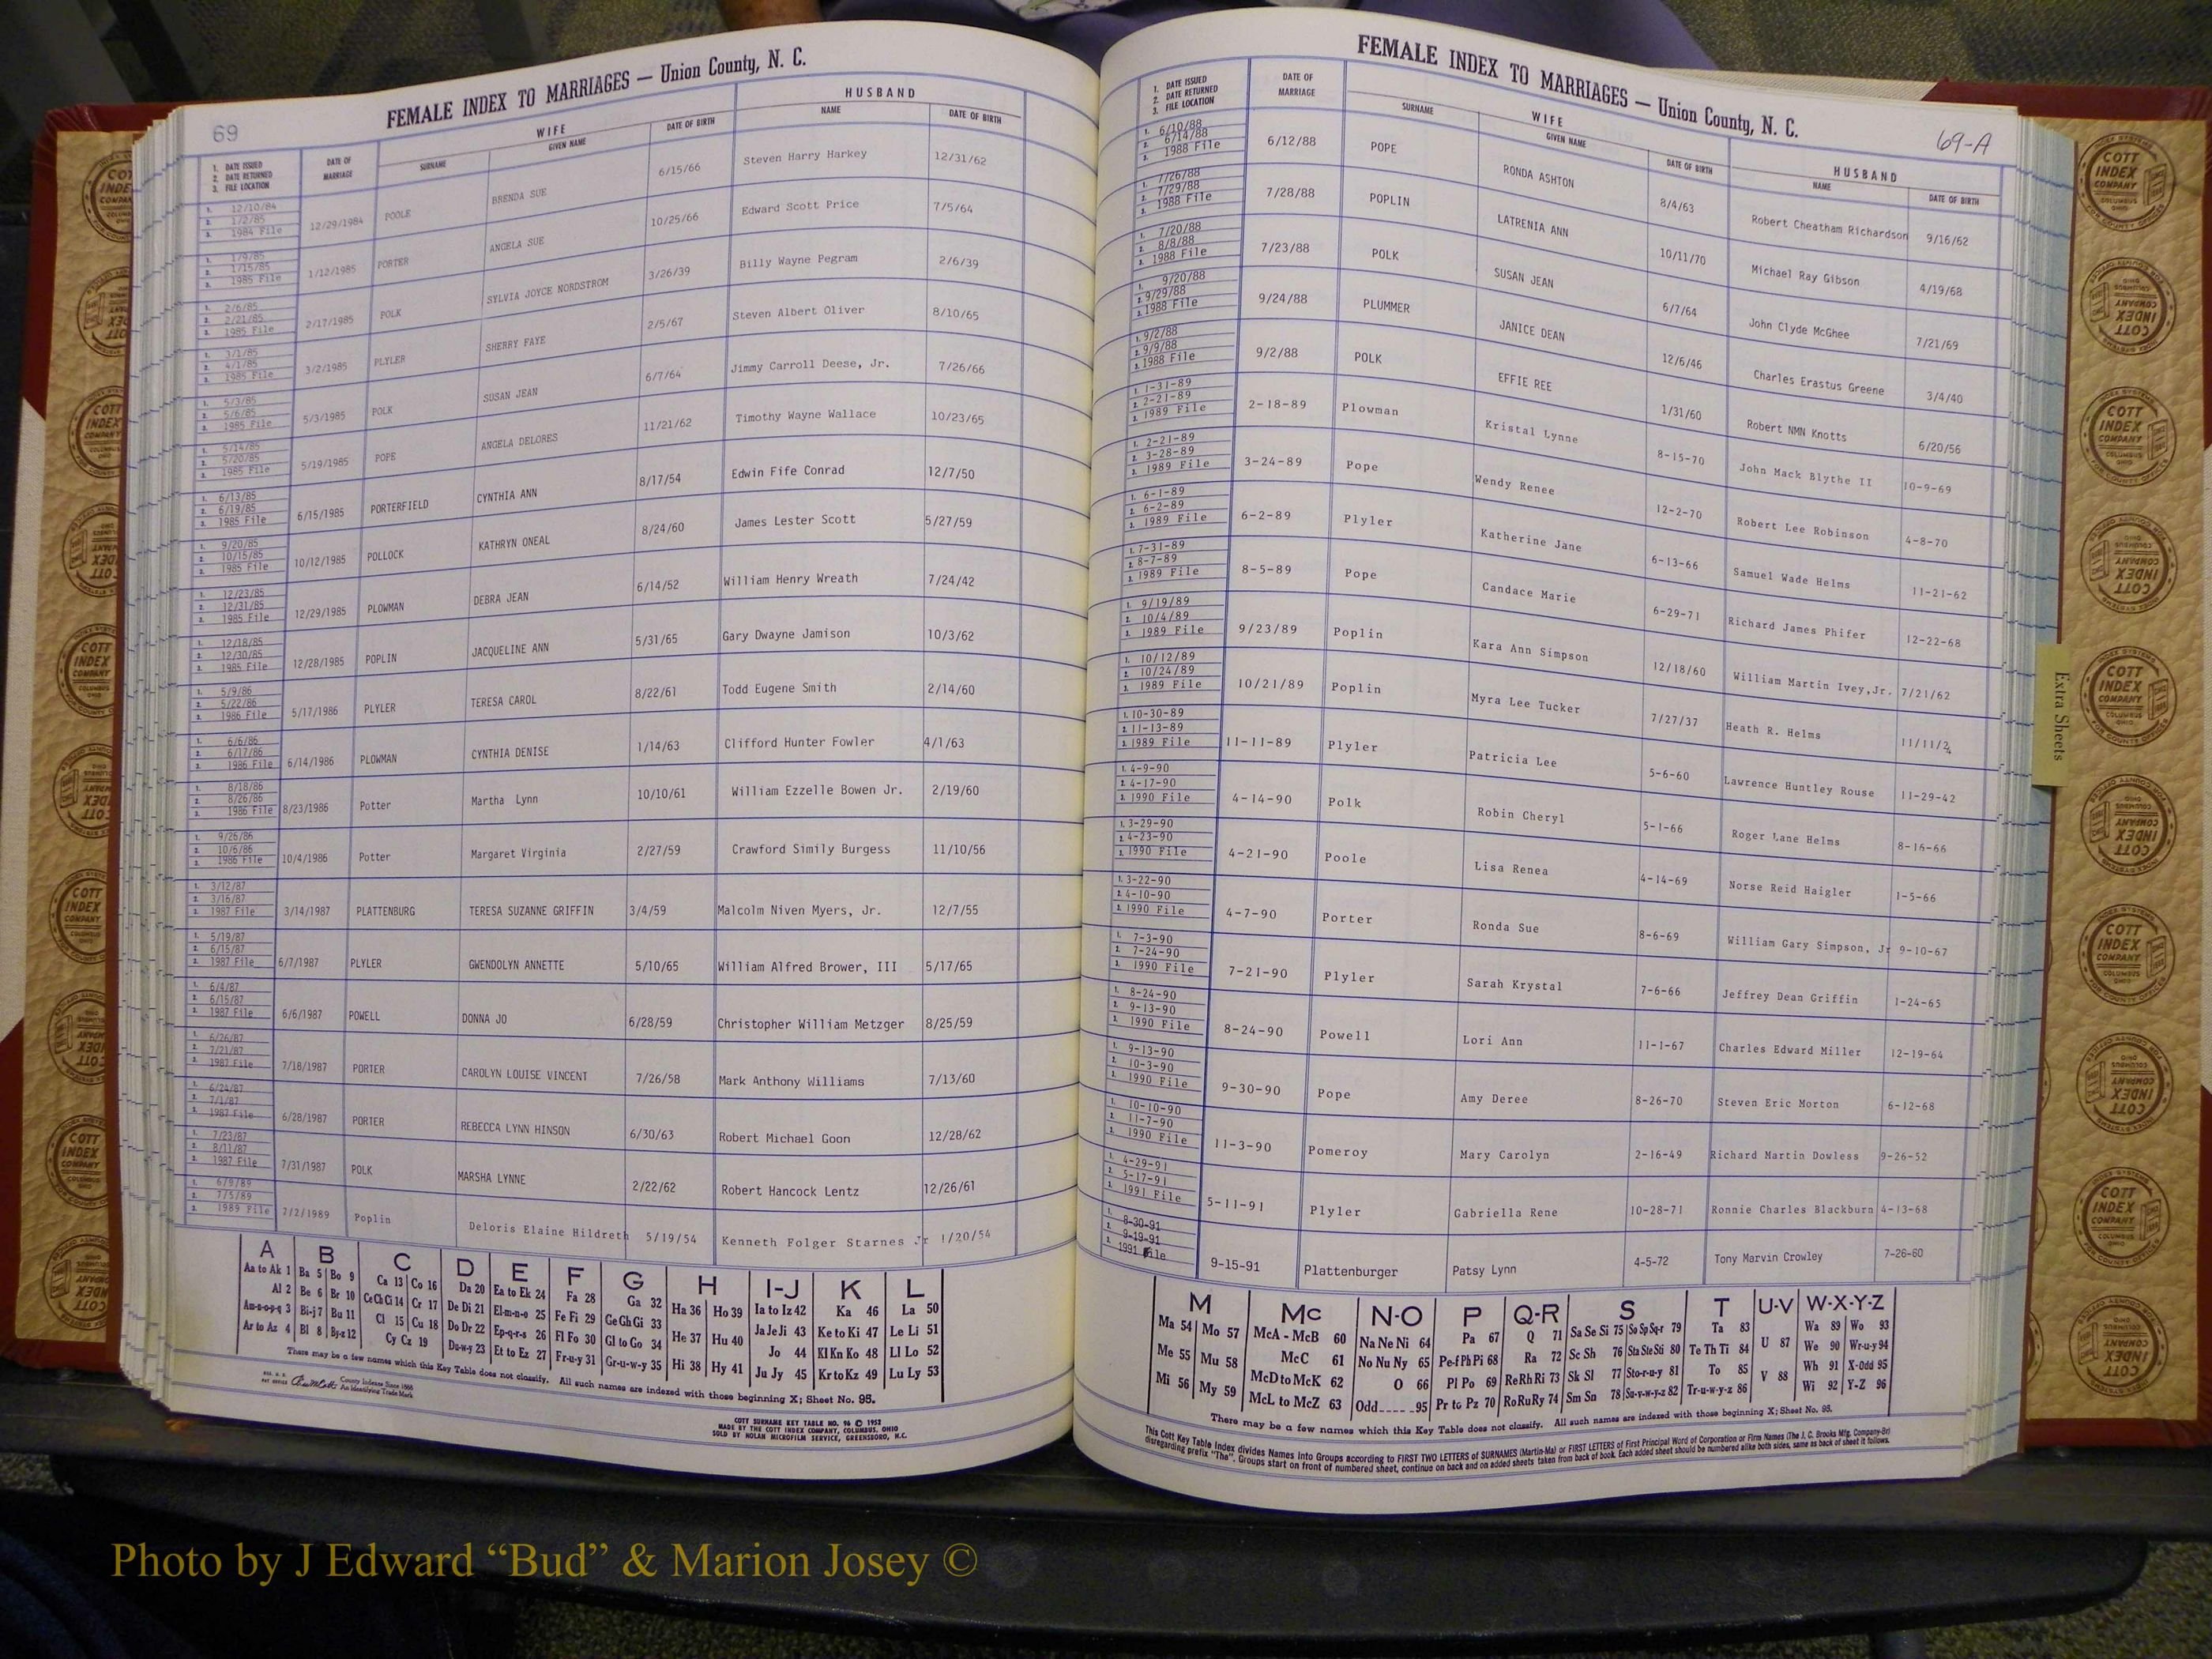 69
FEMALE INDEX TO MARRIAGES — Union County, N. C.
1. DATE ISSUED 2. DATE RETURNED 3. FILE LOCATION DATE OF MARRIAGE WIFE SURNAME GIVEN NAME DATE OF BIRTH HUSBAND NAME DATE OF BIRTH
1. 12/10/84 2. 1/2/85 3. 1984 File 12/29/1984 POOLE BRENDA SUE 6/15/66 Steven Harry Harkey 12/31/62
1. 1/9/85 2. 1/15/85 3. 1985 File 1/12/1985 PORTER ANGELA SUE 10/25/66 Edward Scott Price 7/5/64
1. 2/6/85 2. 2/21/85 3. 1985 File 2/17/1985 POLK SYLVIA JOYCE NORDSTROM 3/26/39 Billy Wayne Pegram 2/6/39
1. 3/1/85 2. 4/1/85 3. 1985 File 3/2/1985 PLYLER SHERRY FAYE 2/5/67 Steven Albert Oliver 8/10/65
1. 5/3/85 2. 5/6/85 3. 1985 File 5/3/1985 POLK SUSAN JEAN 6/7/64 Jimmy Carroll Deese, Jr. 7/26/66
1. 5/14/85 2. 5/20/85 3. 1985 File 5/19/1985 POPE ANGELA DELORES 11/21/62 Timothy Wayne Wallace 10/23/65
1. 6/13/85 2. 6/19/85 3. 1985 File 6/15/1985 PORTERFIELD CYNTHIA ANN 8/17/54 Edwin Fife Conrad 12/7/50
1. 9/20/85 2. 10/15/85 3. 1985 File 10/12/1985 POLLOCK KATHRYN ONEAL 8/24/60 James Lester Scott 5/27/59
1. 12/23/85 2. 12/31/85 3. 1985 File 12/29/1985 PLOWMAN DEBRA JEAN 6/14/52 William Henry Wreath 7/24/42
1. 12/18/85 2. 12/30/85 3. 1985 File 12/28/1985 POPLIN JACQUELINE ANN 5/31/65 Gary Dwayne Jamison 10/3/62
1. 5/9/86 2. 5/22/86 3. 1986 File 5/17/1986 PLYLER TERESA CAROL 8/22/61 Todd Eugene Smith 2/14/60
1. 6/6/86 2. 6/17/86 3. 1986 File 6/14/1986 PLOWMAN CYNTHIA DENISE 1/14/63 Clifford Hunter Fowler 4/1/63
1. 8/18/86 2. 8/26/86 3. 1986 File 8/23/1986 Potter Martha Lynn 10/10/61 William Ezzelle Bowen Jr. 2/19/60
1. 9/26/86 2. 10/6/86 3. 1986 File 10/4/1986 Potter Margaret Virginia 2/27/59 Crawford Simily Burgess 11/10/56
1. 3/12/87 2. 3/16/87 3. 1987 File 3/14/1987 PLATTENBURG TERESA SUZANNE GRIFFIN 3/4/59 Malcolm Niven Myers, Jr. 12/7/55
1. 5/19/87 2. 6/15/87 3. 1987 File 6/7/1987 PLYLER GWENDOLYN ANNETTE 5/10/65 William Alfred Brower, III 5/17/65
1. 6/4/87 2. 6/15/87 3. 1987 File 6/6/1987 POWELL DONNA JO 6/28/59 Christopher William Metzger 8/25/59
1. 6/26/87 2. 7/21/87 3. 1987 File 7/18/1987 PORTER CAROLYN LOUISE VINCENT 7/26/58 Mark Anthony Williams 7/13/60
1. 6/24/87 2. 7/1/87 3. 1987 File 6/28/1987 PORTER REBECCA LYNN HINSON 6/30/63 Robert Michael Goon 12/28/62
1. 7/23/87 2. 8/11/87 3. 1987 File 7/31/1987 POLK MARSHA LYNNE 2/22/62 Robert Hancock Lentz 12/26/61
1. 6/9/89 2. 7/5/89 3. 1989 File 7/2/1989 Poplin Deloris Elaine Hildreth 5/19/54 Kenneth Folger Starnes Jr 1/20/54
A B C D E F G H I-J K L
Aa to Ak 1 Ba 5 Bo 9 Ca 13 Co 16 Da 20 Ea to Ek 24 Fa 28 Ga 32 Ha 36 Ho 39 Ia to Iz 42 Ka 46 La 50
Al 2 Be 6 Br 10 Ce Ch Ci 14 Cr 17 De Di 21 El-m-n-o 25 Fe Fi 29 Ge Gh Gi 33 He 37 Hu 40 Ja Je Ji 43 Ke to Ki 47 Le Li 51
Am-n-o-p-q 3 Bi-j 7 Bu 11 Cl 15 Cu 18 Do Dr 22 Ep-q-r-s 26 Fl Fo 30 Gl to Go 34 Hi 38 Hy 41 Jo 44 Kl Kn Ko 48 Ll Lo 52
Ar to Az 4 Bl 8 By-z 12 Cy Cz 19 Du-w-y 23 Et to Ez 27 Fr-u-y 31 Gr-u-w-y 35 Ju Jy 45 Kr to Kz 49 Lu Ly 53
There may be a few names which this Key Table does not classify. All such names are indexed with those beginning X; Sheet No. 95.
County Indexes Since 1888
An Identifying Trade Mark
COTT SURNAME KEY TABLE NO. 96 © 1952
MADE BY THE COTT INDEX COMPANY, COLUMBUS, OHIO
SOLD BY NOLAN MICROFILM SERVICE, GREENSBORO, N.C.
FEMALE INDEX TO MARRIAGES — Union County, N. C.
69-A
1. DATE ISSUED 2. DATE RETURNED 3. FILE LOCATION DATE OF MARRIAGE WIFE SURNAME GIVEN NAME DATE OF BIRTH HUSBAND NAME DATE OF BIRTH
1. 6/10/88 2. 6/14/88 3. 1988 File 6/12/88 POPE RONDA ASHTON 8/4/63 Robert Cheatham Richardson 9/16/62
1. 7/26/88 2. 7/29/88 3. 1988 File 7/28/88 POPLIN LATRENIA ANN 10/11/70 Michael Ray Gibson 4/19/68
1. 7/20/88 2. 8/8/88 3. 1988 File 7/23/88 POLK SUSAN JEAN 6/7/64 John Clyde McGhee 7/21/69
1. 9/20/88 2. 9/29/88 3. 1988 File 9/24/88 PLUMMER JANICE DEAN 12/6/46 Charles Erastus Greene 3/4/40
1. 9/2/88 2. 9/9/88 3. 1988 File 9/2/88 POLK EFFIE REE 1/31/60 Robert NMN Knotts 6/20/56
1. 1-31-89 2. 2-21-89 3. 1989 File 2-18-89 Plowman Kristal Lynne 8-15-70 John Mack Blythe II 10-9-69
1. 2-21-89 2. 3-28-89 3. 1989 File 3-24-89 Pope Wendy Renee 12-2-70 Robert Lee Robinson 4-8-70
1. 6-1-89 2. 6-2-89 3. 1989 File 6-2-89 Plyler Katherine Jane 6-13-66 Samuel Wade Helms 11-21-62
1. 7-31-89 2. 8-7-89 3. 1989 File 8-5-89 Pope Candace Marie 6-29-71 Richard James Phifer 12-22-68
1. 9/19/89 2. 10/4/89 3. 1989 File 9/23/89 Poplin Kara Ann Simpson 12/18/60 William Martin Ivey,Jr. 7/21/62
1. 10/12/89 2. 10/24/89 3. 1989 File 10/21/89 Poplin Myra Lee Tucker 7/27/37 Heath R. Helms 11/11/24
1. 10-30-89 2. 11-13-89 3. 1989 File 11-11-89 Plyler Patricia Lee 5-6-60 Lawrence Huntley Rouse 11-29-42
1. 4-9-90 2. 4-17-90 3. 1990 File 4-14-90 Polk Robin Cheryl 5-1-66 Roger Lane Helms 8-16-66
1. 3-29-90 2. 4-23-90 3. 1990 File 4-21-90 Poole Lisa Renea 4-14-69 Norse Reid Haigler 1-5-66
1. 3-22-90 2. 4-10-90 3. 1990 File 4-7-90 Porter Ronda Sue 8-6-69 William Gary Simpson, Jr 9-10-67
1. 7-3-90 2. 7-24-90 3. 1990 File 7-21-90 Plyler Sarah Krystal 7-6-66 Jeffrey Dean Griffin 1-24-65
1. 8-24-90 2. 9-13-90 3. 1990 File 8-24-90 Powell Lori Ann 11-1-67 Charles Edward Miller 12-19-64
1. 9-13-90 2. 10-3-90 3. 1990 File 9-30-90 Pope Amy Deree 8-26-70 Steven Eric Morton 6-12-68
1. 10-10-90 2. 11-7-90 3. 1990 File 11-3-90 Pomeroy Mary Carolyn 2-16-49 Richard Martin Dowless 9-26-52
1. 4-29-91 2. 5-17-91 3. 1991 File 5-11-91 Plyler Gabriella Rene 10-28-71 Ronnie Charles Blackburn 4-13-68
1. 8-30-91 2. 9-19-91 3. 1991 File 9-15-91 Plattenburger Patsy Lynn 4-5-72 Tony Marvin Crowley 7-26-60
M Mc N-O P Q-R S T U-V W-X-Y-Z
Ma 54 Mo 57 McA - McB 60 Na Ne Ni 64 Pa 67 Q 71 Sa Se Si 75 So Sp Sq-r 79 Ta 83 U 87 Wa 89 Wo 93
Me 55 Mu 58 McC 61 No Nu Ny 65 Pe-f Ph Pi 68 Ra 72 Sc Sh 76 Sta Ste Sti 80 Te Th Ti 84 V 88 We 90 Wr-u-y 94
Mi 56 My 59 McD to McK 62 O 66 Pl Po 69 Re Rh Ri 73 Sk Sl 77 Sto-r-u-y 81 To 85 Wh 91 X-Odd 95
McL to McZ 63 Odd 95 Pr to Pz 70 Ro Ru Ry 74 Sm Sn 78 Su-v-w-y-z 82 Tr-u-w-y-z 86 Wi 92 Y-Z 96
There may be a few names which this Key Table does not classify. All such names are indexed with those beginning X; Sheet No. 95.
This Cott Key Table Index divides Names Into Groups according to FIRST TWO LETTERS of SURNAMES (Martin-Ma) or FIRST LETTERS of First Principal Word of Corporation or Firm Names (The J. C. Brooks Mfg. Company-Br)
disregarding prefix "The". Groups start on front of numbered sheet, continue on back and on added sheets taken from back of book. Each added sheet should be numbered alike both sides, same as back of sheet it follows.
Extra Sheets
COTT INDEX COMPANY COLUMBUS OHIO
Photo by J Edward “Bud” & Marion Josey ©